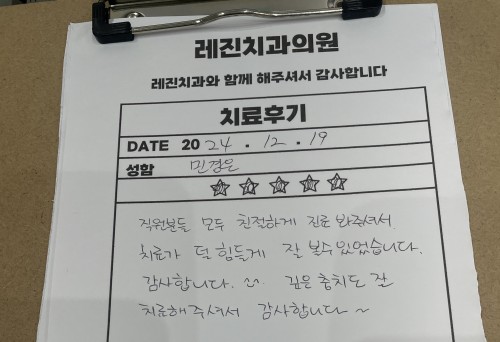 레진치과의원
레진치과와 함께 해주셔서 감사합니다
치료후기
DATE 2024.12.19
성함 민경은
직원분들 모두 친절하게 진료 봐주셔서
치료가 덜 힘들게 잘 볼수 있었습니다.
감사합니다. ^^ 깊은 충치도 잘
치료해 주셔서 감사합니다~